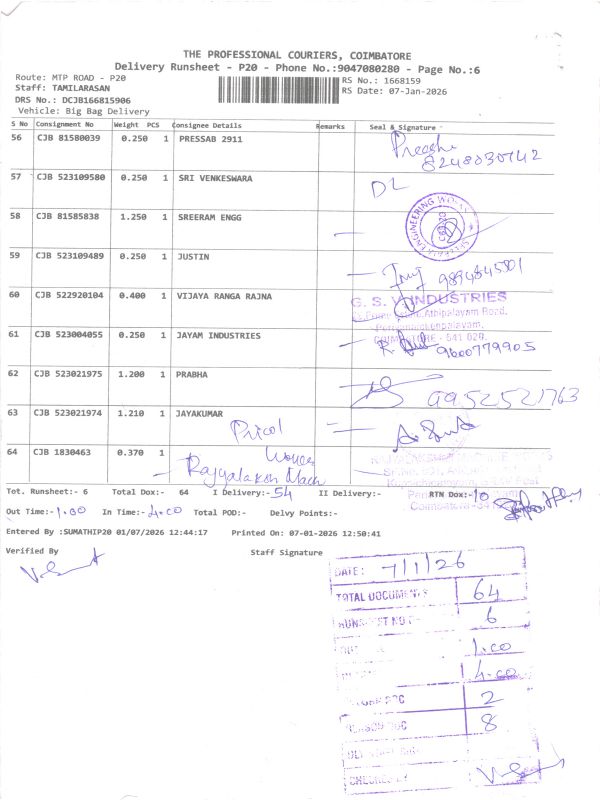 THE PROFESSIONAL COURIERS, COIMBATORE
Delivery Runsheet - P20 - Phone No.:9047080280 - Page No.:6
Route: MTP ROAD - P20
RS No.: 1668159
Staff: TAMILARASAN
RS Date: 07-Jan-2026
DRS No.: DCJB166815906
Vehicle: Big Bag Delivery
S No Consignment No Weight PCS Consignee Details Remarks Seal & Signature
56 CJB 81580039 0.250 1 PRESSAB 2911
8248030742
57 CJB 523109580 0.250 1 SRI VENKESWARA DL
58 CJB 81585838 1.250 1 SREERAM ENGG
ENGINEERING WORKS
59 CJB 523109489 0.250 1 JUSTIN
9894845801
60 CJB 522920104 0.400 1 VIJAYA RANGA RAJNA
G. S. V INDUSTRIES
Athipalayam Road,
COIMBATORE - 641 029.
61 CJB 523004055 0.250 1 JAYAM INDUSTRIES
9600779905
62 CJB 523021975 1.200 1 PRABHA
9952521763
63 CJB 523021974 1.210 1 JAYAKUMAR
Pricol
64 CJB 1830463 0.370 1
Tot. Runsheet:- 6 Total Dox:- 64 I Delivery:- 54 II Delivery:- RTN Dox:- 10
Out Time:- 1.00 In Time:- 4.00 Total POD:- Delvy Points:-
Entered By :SUMATHIP20 01/07/2026 12:44:17 Printed On: 07-01-2026 12:50:41
Verified By Staff Signature
DATE: 7/1/26
TOTAL DOCUMENTS 64
6
1.00
4.00
2
8